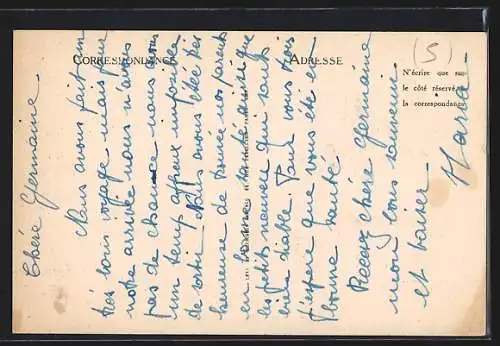 CORRESPONDANCE
ADRESSE
N'écrire que sur
le côté réservé
la correspondance
(5)
Chère Germaine
Nous avons fait un
très bons voyage mais pour
notre arrivée nous n'avons
pas de chance nous avons
un temps affreux impossible
de sortir. Nous avons étée très
heureuse de trouvée nos parents
en bonne santé ainsi que
les petits neveux qui sont
bien diable. Pour vous tous
J'espère que vous été en
bonne santé
Recevez chère Germaine
mon bons souvenir
et baiser
Marcel